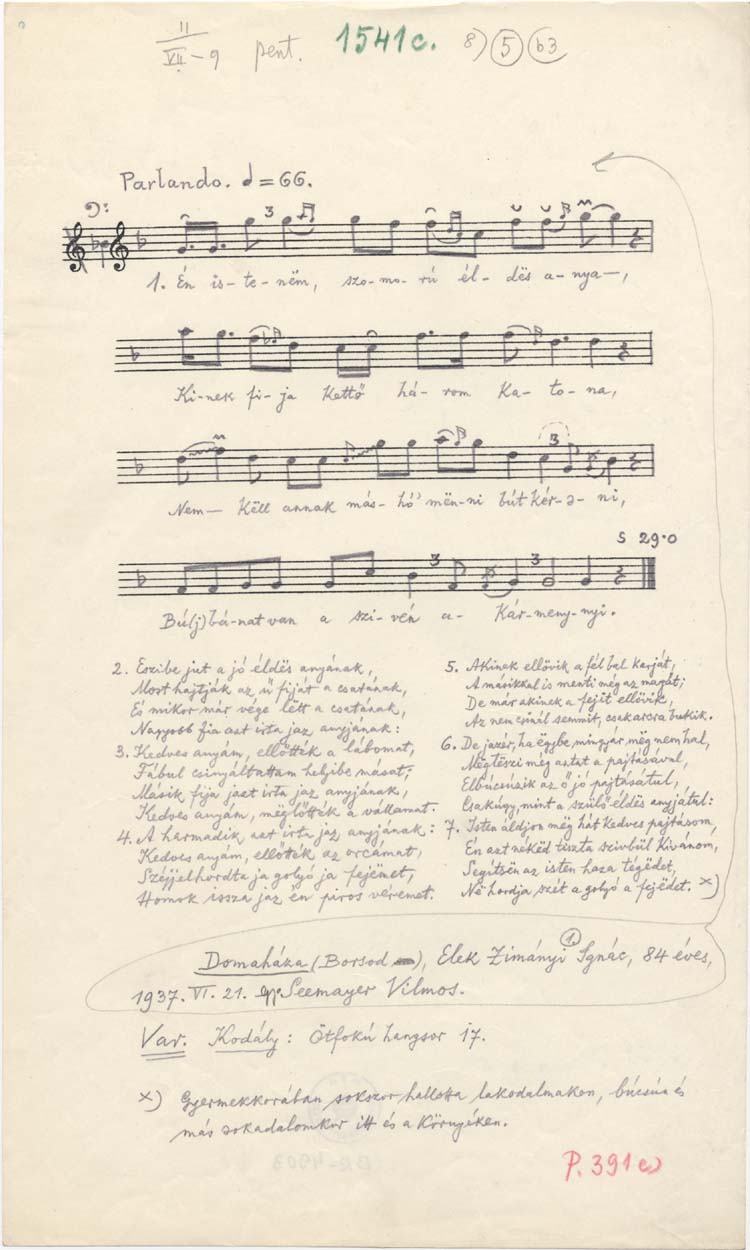 11
VII – 9 pent. 1541c. 8) 5 63
Parlando. = 66.
3
1. Én is- te- ném, szo- mo- rú él- dës a- nya—,
Ki- nek fi- ja kettő há- rom ka- to- na,
3
Nem— këll annak más- hó' mën- ni bút kér- ə- ni,
S 29·0
3 3
Bú(j)bá- nat van a szi- vén a- kár- meny- nyi.
2. Eszibe jut a jó éldës anyának,
Most hajtják az ű fiját a csatának,
És mikor már vége lëtt a csatának,
Nagyobb fia azt irta jaz anyjának:
3. Kedves anyám, ellőtték a lábomat,
Fábul csinyáltattam helyibe másat;
Másik fija jazt irta jaz anyjának,
Kedves anyám, mëglőtték a vállamat.
4. A harmadik azt irta jaz anyjának:
Kedves anyám, ellőtték az orcámat,
Széjjelhordta ja golyó ja fejemet,
Homok issza jaz én piros véremet.
5. Akinek ellövik a fél bal karját,
A másikkal is menti még az magát;
De már akinek a fejit ellövik,
Az nem csinál semmit, csak arcra bukik.
6. De jazér, ha ëgybe mingyár mëg nem hal,
Mëgtészi még aztat a pajtásával,
Elbúcsúzik az ő jó pajtásátul,
Csakúgy, mint a szülő éldës anyjátul:
7. Isten áldjon mëg hát kedves pajtásom,
Én azt nékëd tiszta szivbül kivánom,
Segítsën az isten haza tégëdet,
Në hordja szét a golyó a fejëdet. x)
Domaháza (Borsod), Elek Zimányi 1. Ignác, 84 éves,
1937. VI. 21. Seemayer Vilmos.
Var. Kodály: Ötfokú hangsor 17.
x) Gyermekkorában sokszor hallotta lakodalmakon, búcsún és
más sokadalomkor itt és a környéken.
P. 391c)